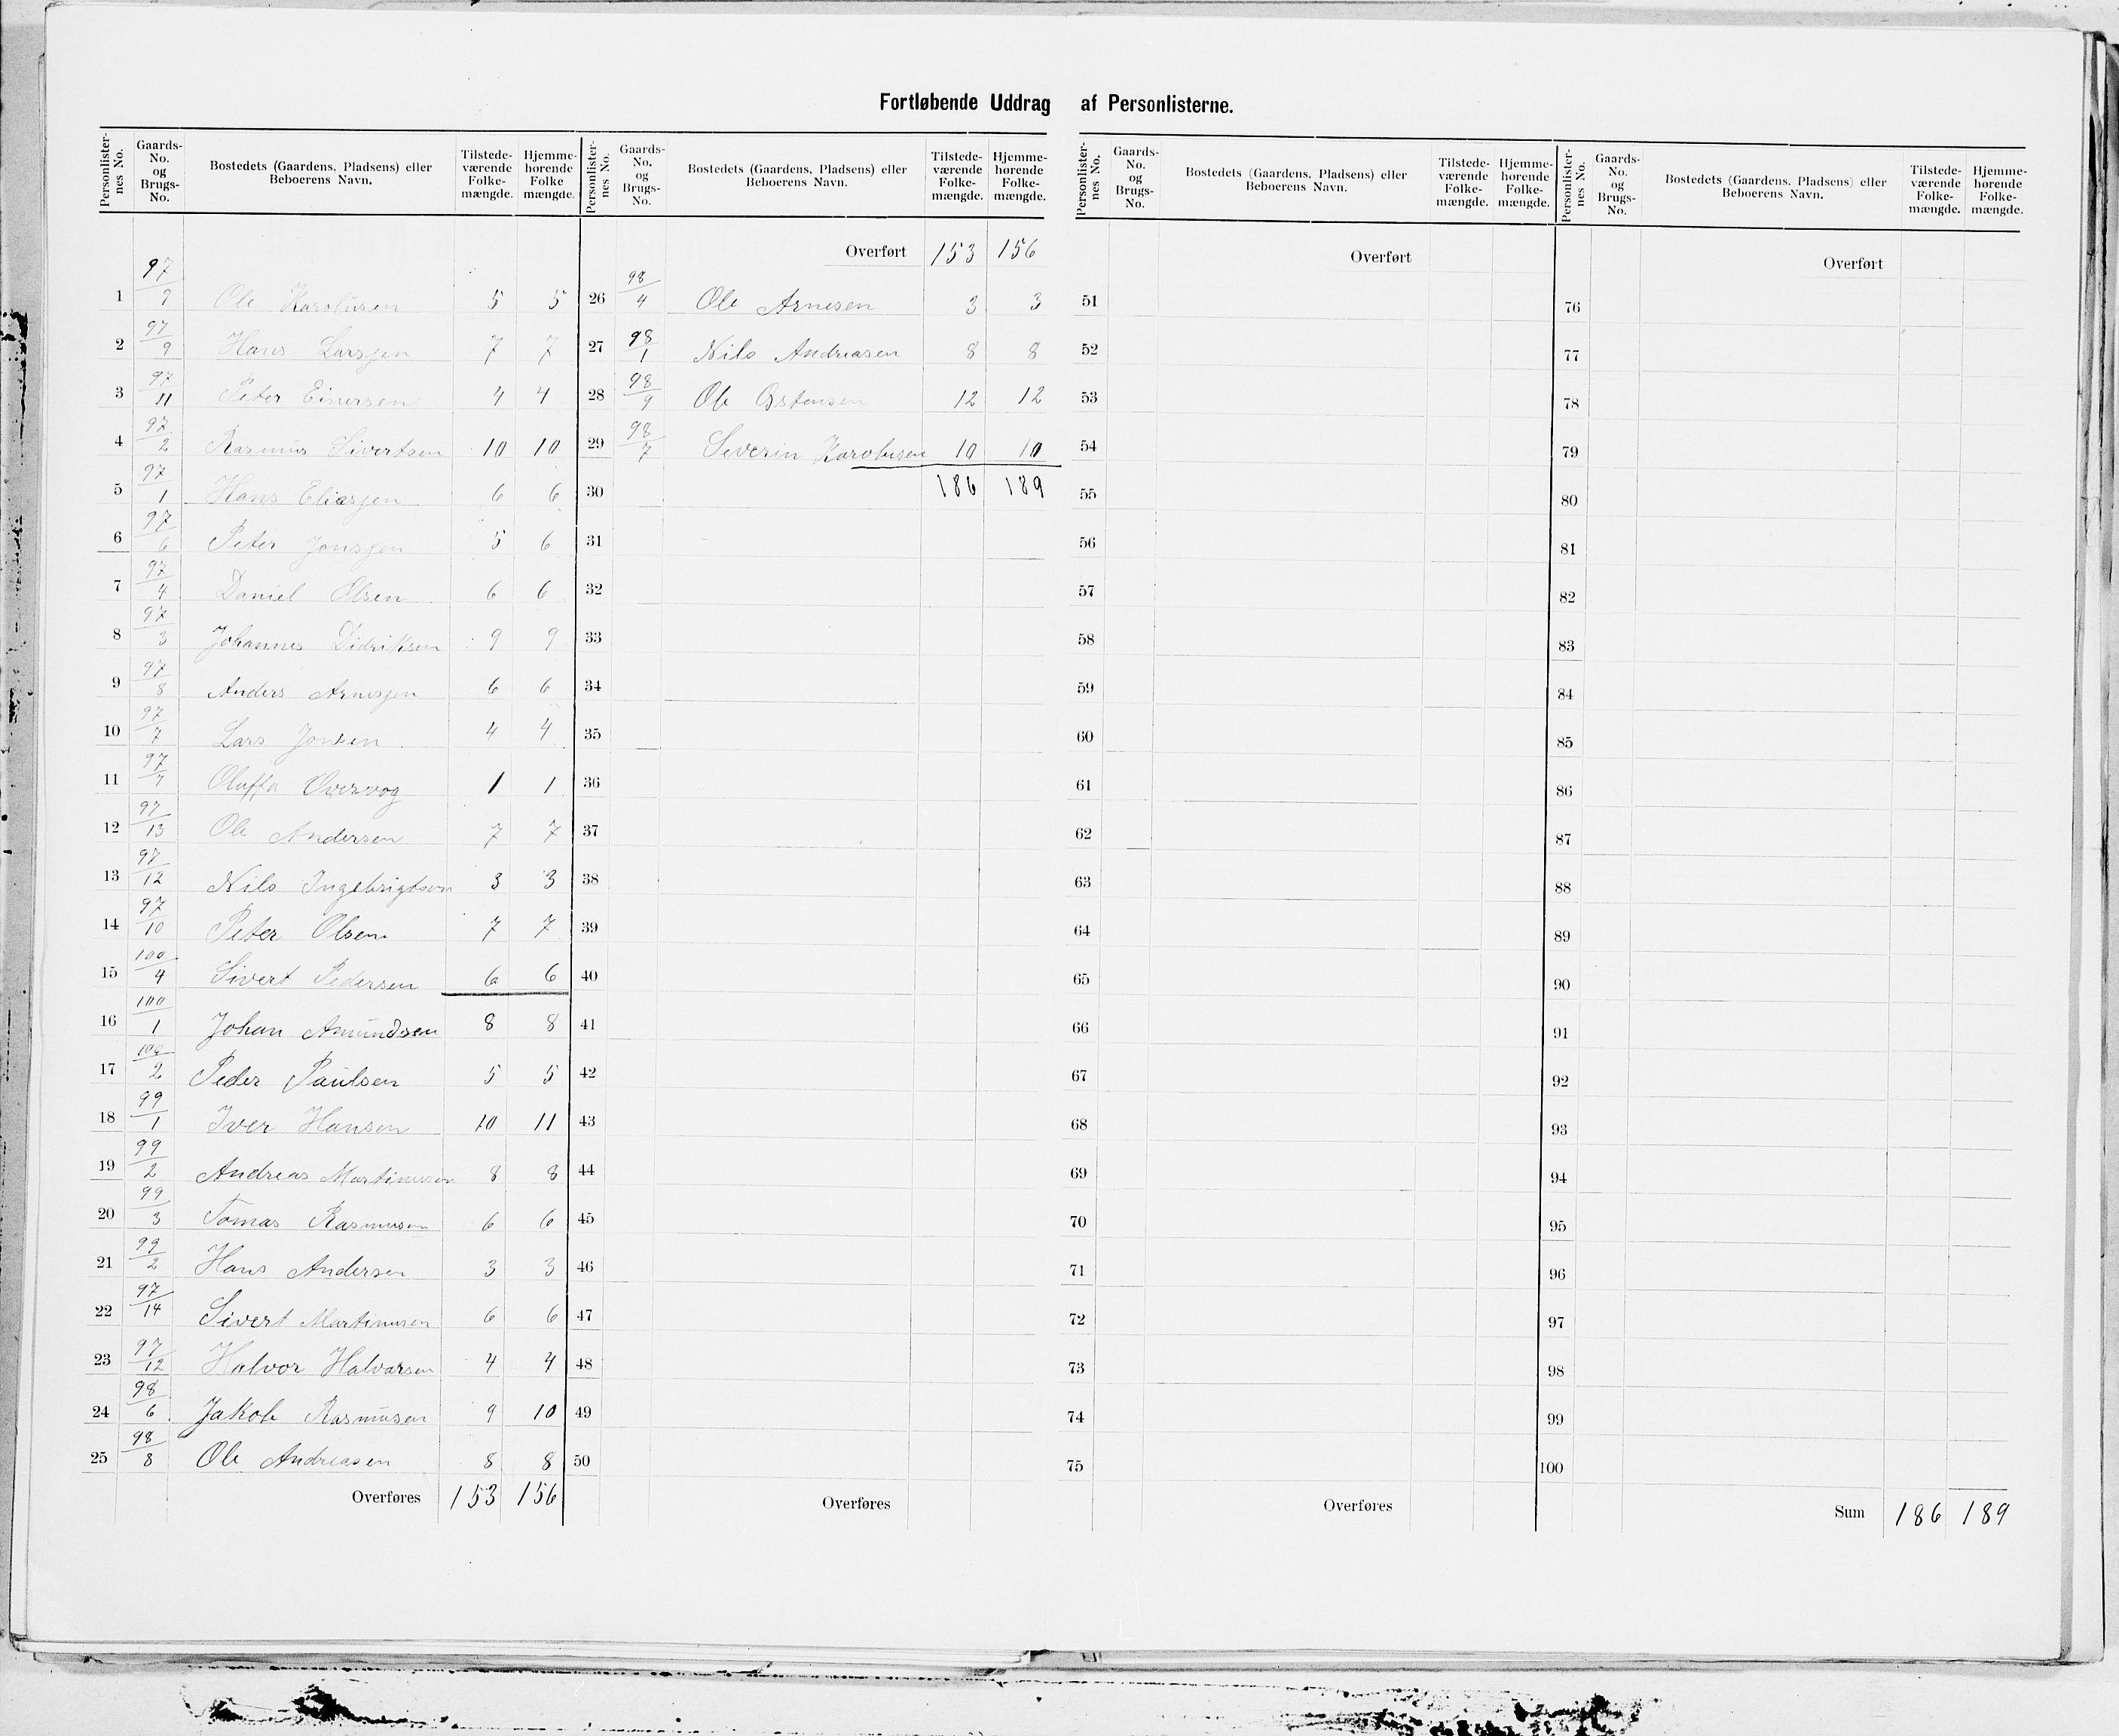 Fortløbende Uddrag af Personlisterne.
Personlisternes No. | Gaards-No. og Brugs-No. | Bostedets (Gaardens, Pladsens) eller Beboerens Navn. | Tilstedeværende Folkemængde. | Hjemmehørende Folkemængde.
1 97/9 Ole Karolusen 5 5
2 97/9 Hans Larsjen 7 7
3 97/11 Peter Einersen 4 4
4 97/2 Rasmus Sivertsen 10 10
5 97/1 Hans Eliasjen 6 6
6 97/6 Peter Jonsjen 5 6
7 97/4 Daniel Olsen 6 6
8 97/3 Johannes Didriksen 9 9
9 97/8 Anders Arnesjen 6 6
10 97/7 Lars Jonsen 4 4
11 97/7 Oluffa Overvog 1 1
12 97/13 Ole Andersen 7 7
13 97/12 Nils Ingebrigtsen 3 3
14 97/10 Peter Olsen 7 7
15 100/4 Sivert Pedersen 6 6
16 100/1 Johan Amundsen 8 8
17 100/2 Peder Paulsen 5 5
18 99/1 Iver Hansen 10 11
19 99/2 Andreas Martinusen 8 8
20 99/3 Tomas Rasmusen 6 6
21 99/2 Hans Andersen 3 3
22 97/14 Sivert Martinusen 6 6
23 97/12 Halvor Halvorsen 4 4
24 98/6 Jakob Rasmusen 9 10
25 98/8 Ole Andreasen 8 8
Overføres 153 156
Personlisternes No. | Gaards-No. og Brugs-No. | Bostedets (Gaardens, Pladsens) eller Beboerens Navn. | Tilstedeværende Folkemængde. | Hjemmehørende Folkemængde.
Overført 153 156
26 98/4 Ole Arnesen 3 3
27 98/1 Nils Andreasen 8 8
28 98/9 Ole Østensen 12 12
29 98/7 Severin Karolusen 10 10
30 186 189
31
32
33
34
35
36
37
38
39
40
41
42
43
44
45
46
47
48
49
50
Overføres
Personlisternes No. | Gaards-No. og Brugs-No. | Bostedets (Gaardens, Pladsens) eller Beboerens Navn. | Tilstedeværende Folkemængde. | Hjemmehørende Folkemængde.
Overført
51
52
53
54
55
56
57
58
59
60
61
62
63
64
65
66
67
68
69
70
71
72
73
74
75
Overføres
Personlisternes No. | Gaards-No. og Brugs-No. | Bostedets (Gaardens, Pladsens) eller Beboerens Navn. | Tilstedeværende Folkemængde. | Hjemmehørende Folkemængde.
Overført
76
77
78
79
80
81
82
83
84
85
86
87
88
89
90
91
92
93
94
95
96
97
98
99
100
Sum 186 189